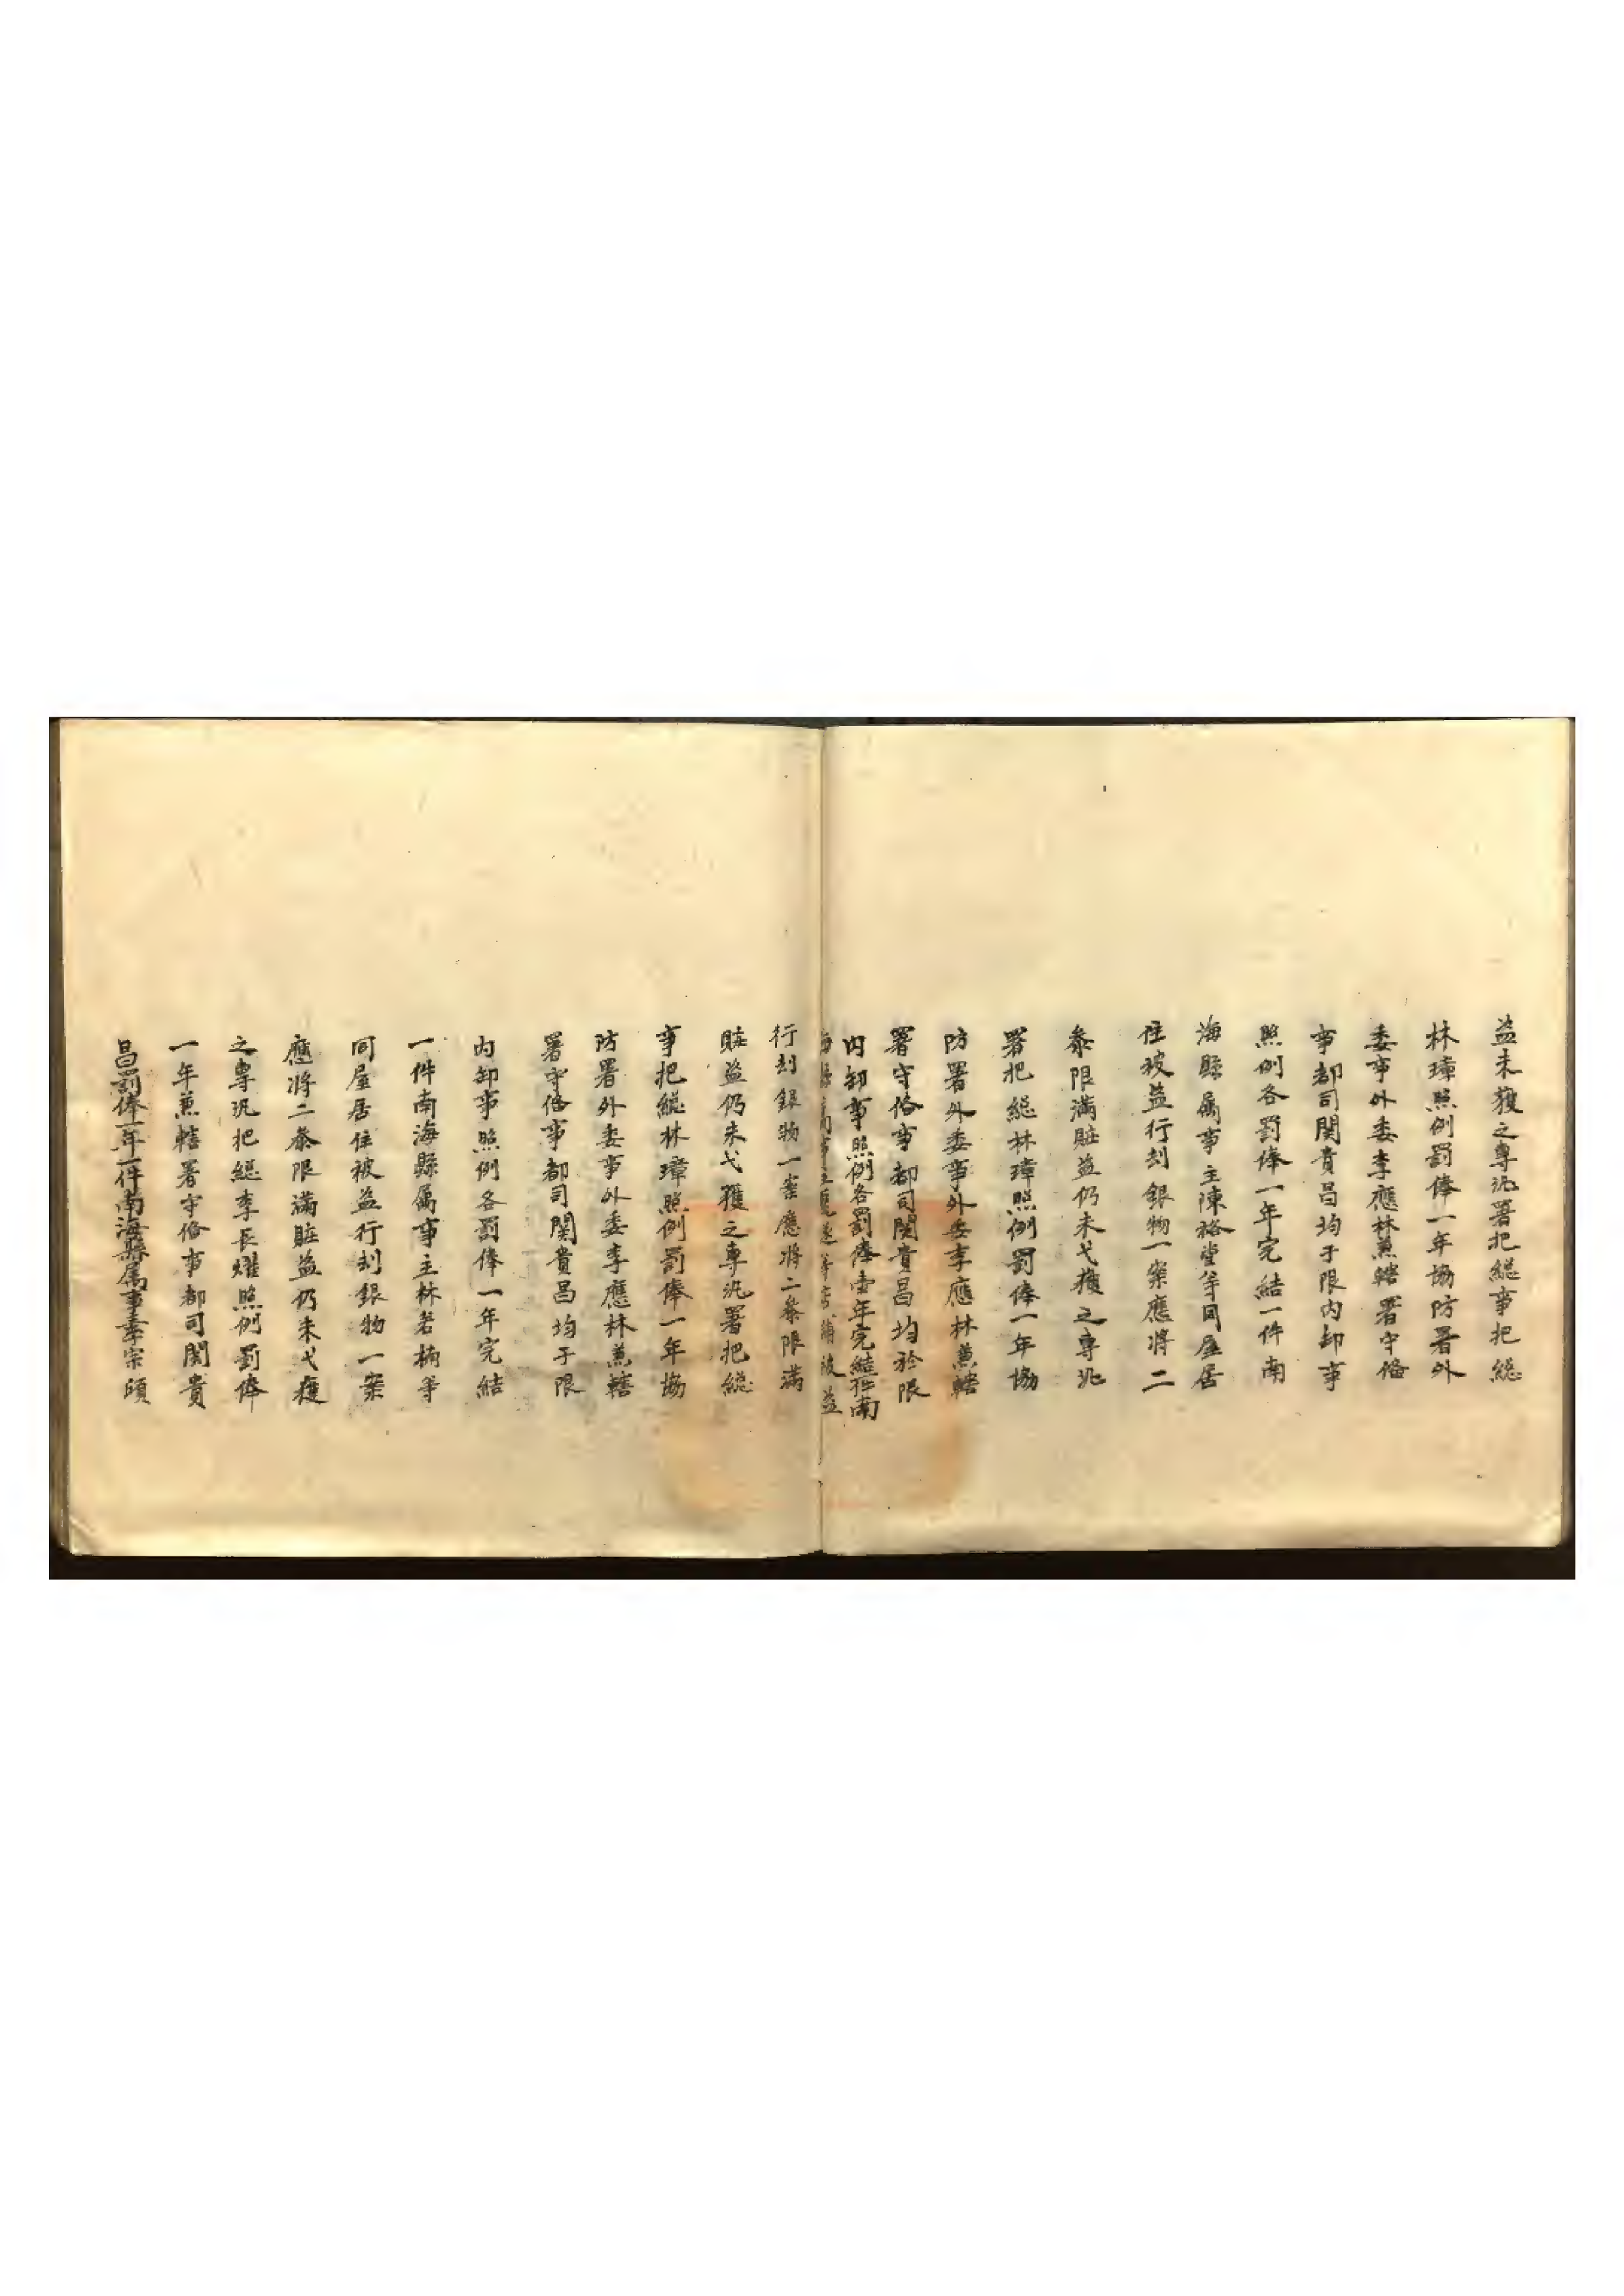 盜未獲之專汛署把総事把総
林璋照例罰俸一年協防署外
委事外委李應林兼轄署守俻
事都司関貴昌均于限内卸事
照例各罰俸一年完結一件南
海縣属事主陳裕堂等同屋居
住被盗行刦銀物一案應將二
叅限滿賍盗仍未弋獲之專汛
署把総林璋照例罰俸一年協
防署外委事外委李應林兼轄
署守俻事都司関貴昌均於限
内卸事照例各罰俸壹年完結一件南
海縣属事主遂等店鋪被盗
行刦銀物一案應將二叅限滿
賍盗仍未弋獲之專汛署把総
事把総林璋照例罰俸一年協
防署外委事外委李應林兼轄
署守俻事都司関貴昌均于限
内卸事照例各罰俸一年完結
一件南海縣属事主林若楠等
同屋居住被盗行刦銀物一案
應將二叅限滿賍盗仍未弋獲
之專汛把総李長燿照例罰俸
一年兼轄署守俻事都司関貴
昌罰俸一年一件南海縣属事主宗頎